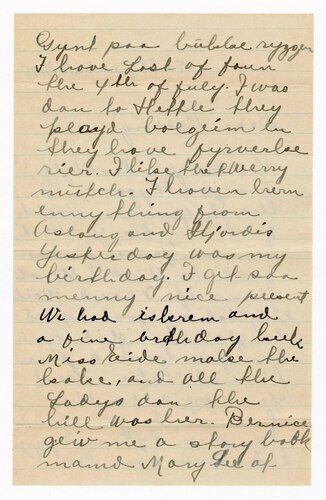 Gynt paa bubbe ryggen
I have Lost of foun
the 4th of fuly. I was
dan to Heffle they
playd bolgeim in
they have fyrverke
rier. I like thet werry
mutch. I haven hern
enny thing from
Aslaug and Hjordis
Yesterday was my
birthday. I get saa
menny nice present
We had iskrem and
a fine brthday keek
Miss Eide make the
kake, and all the
Ladys dan the
hill was her. Bernice
geiv me a story bokk
maind Mary Lee at